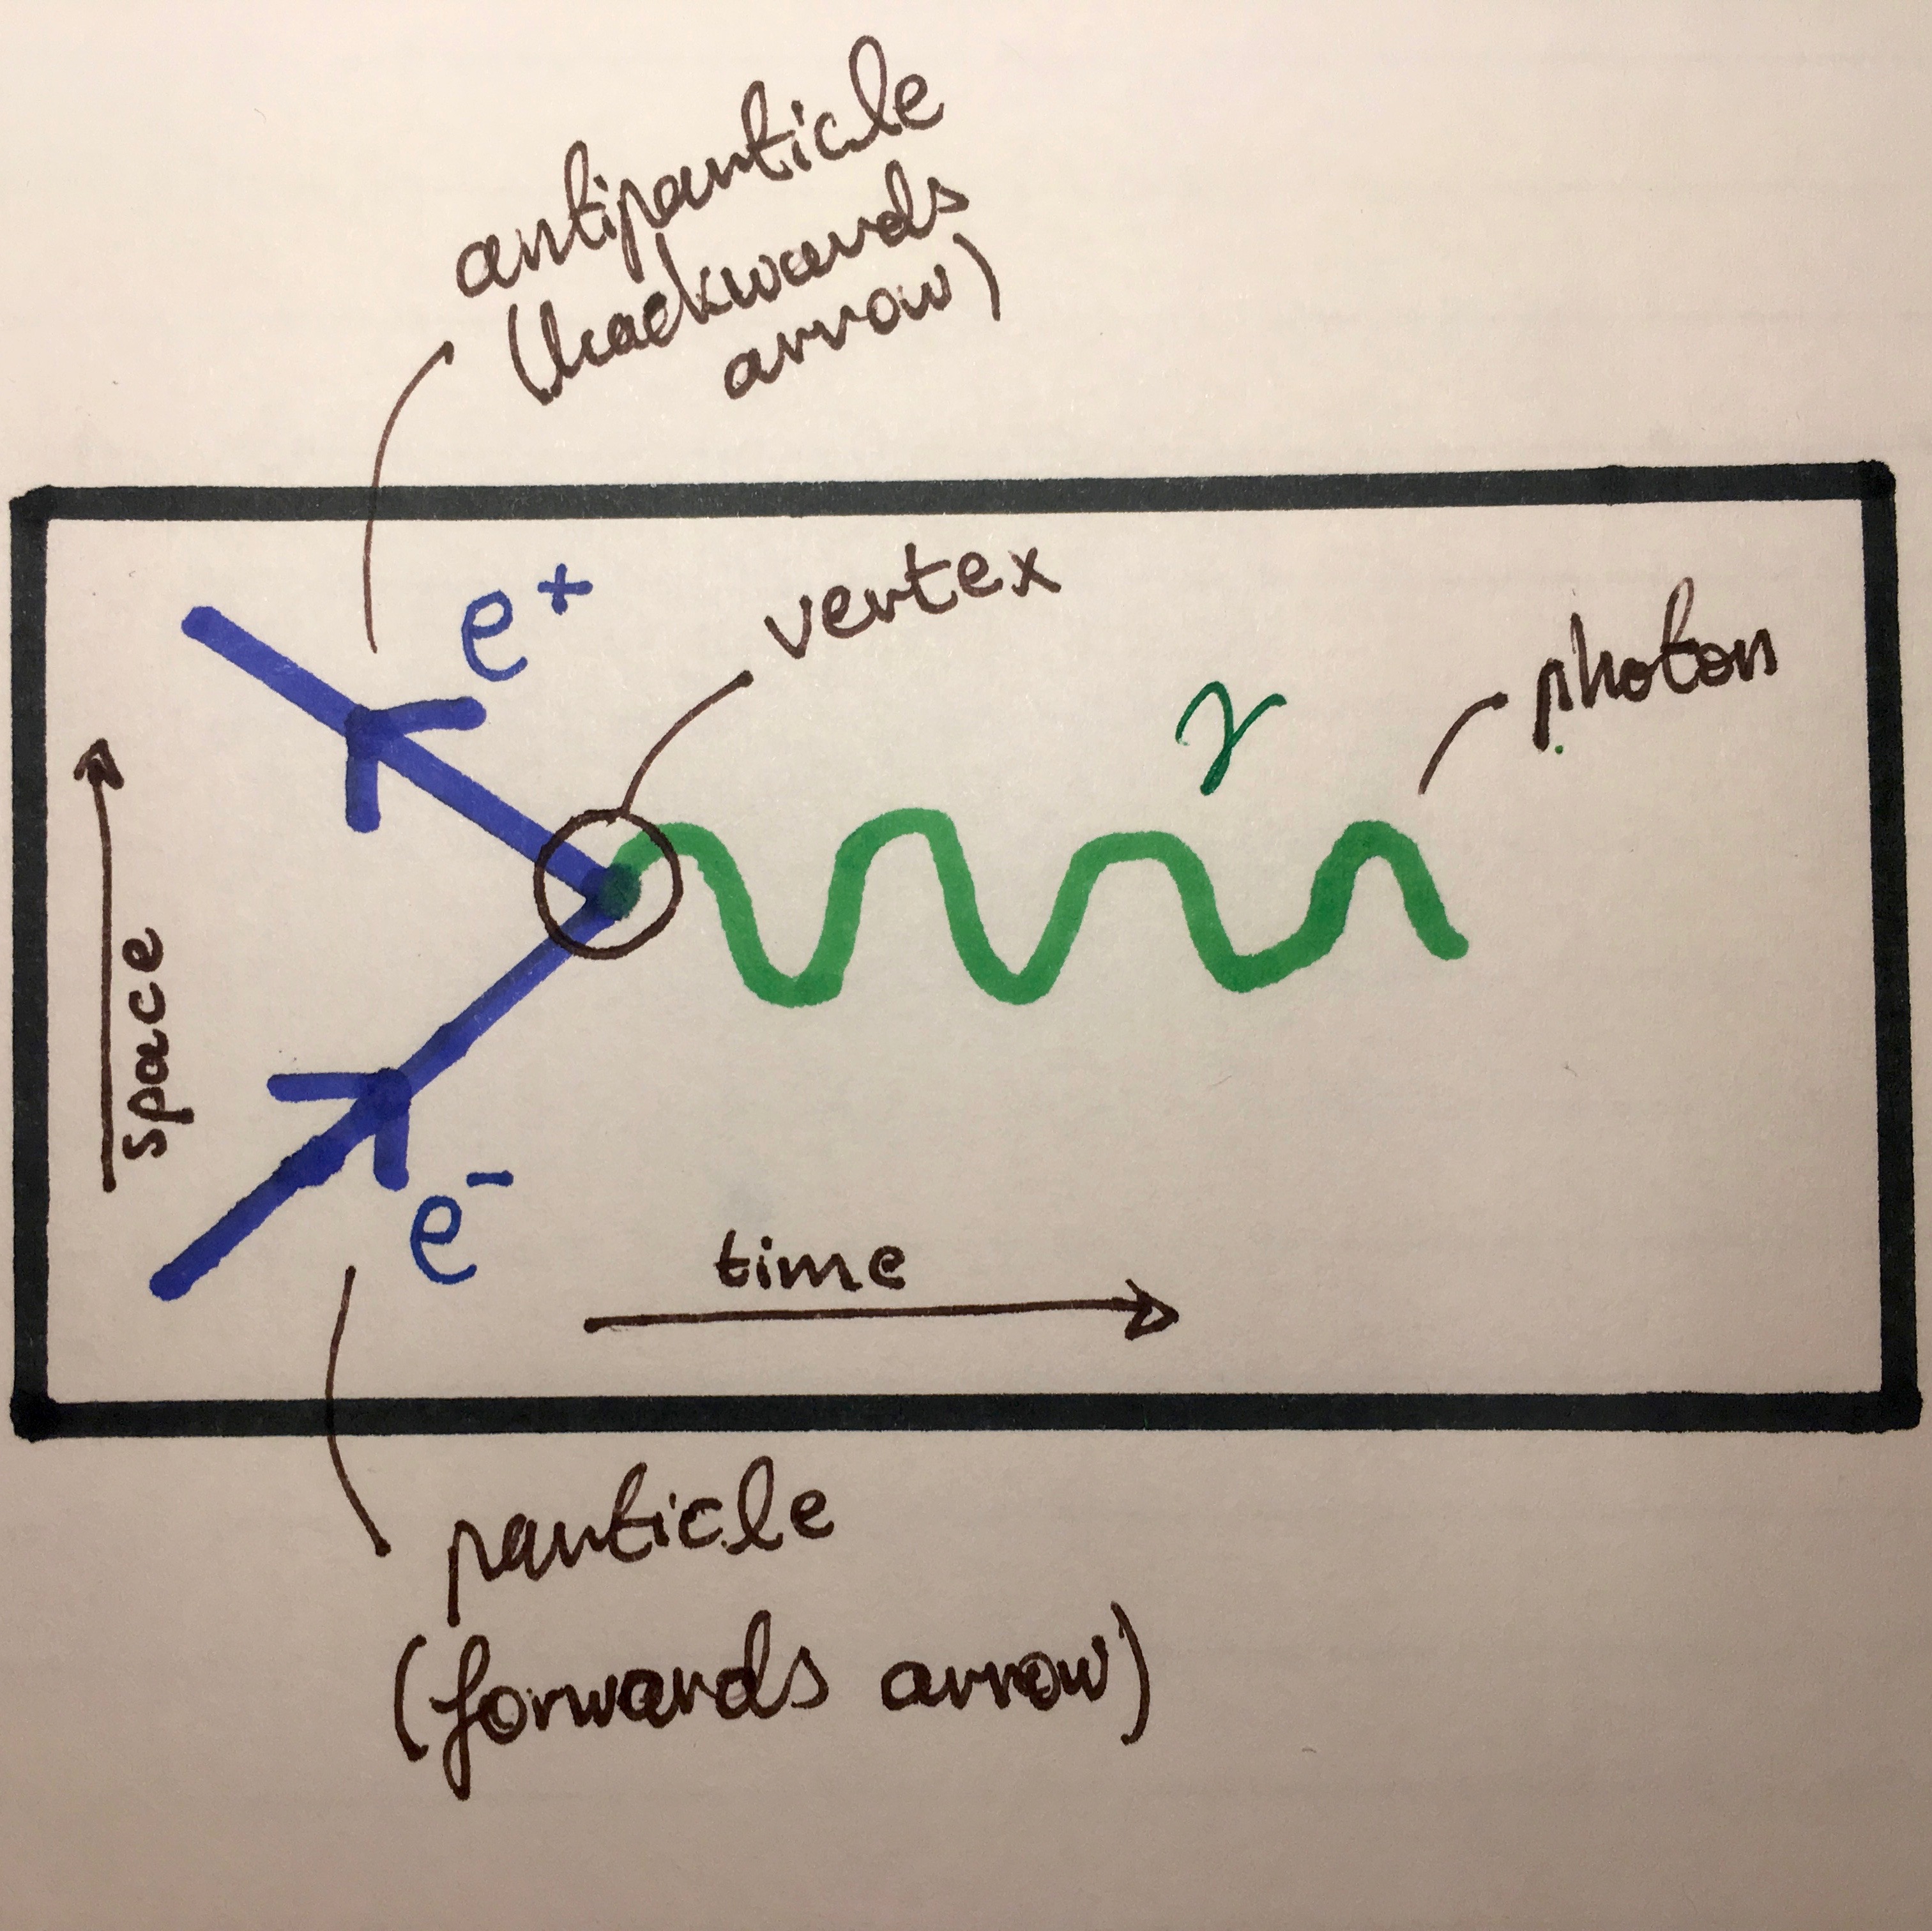 antiparticle
(backwards
arrow)
e+
vertex
photon
γ
space
e-
time
particle
(forwards arrow)